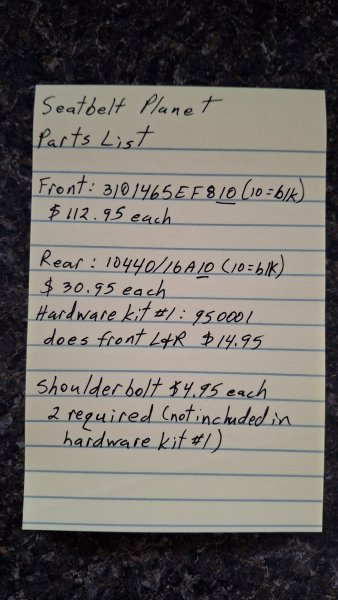 Seatbelt Planet
Parts List
Front: 3101465EF810 (10=blk)
$112.95 each
Rear: 10440/16A10 (10=blk)
$30.95 each
Hardware kit #1: 950001
does front L&R $14.95
Shoulder bolt $4.95 each
2 required (not included in
hardware kit #1)